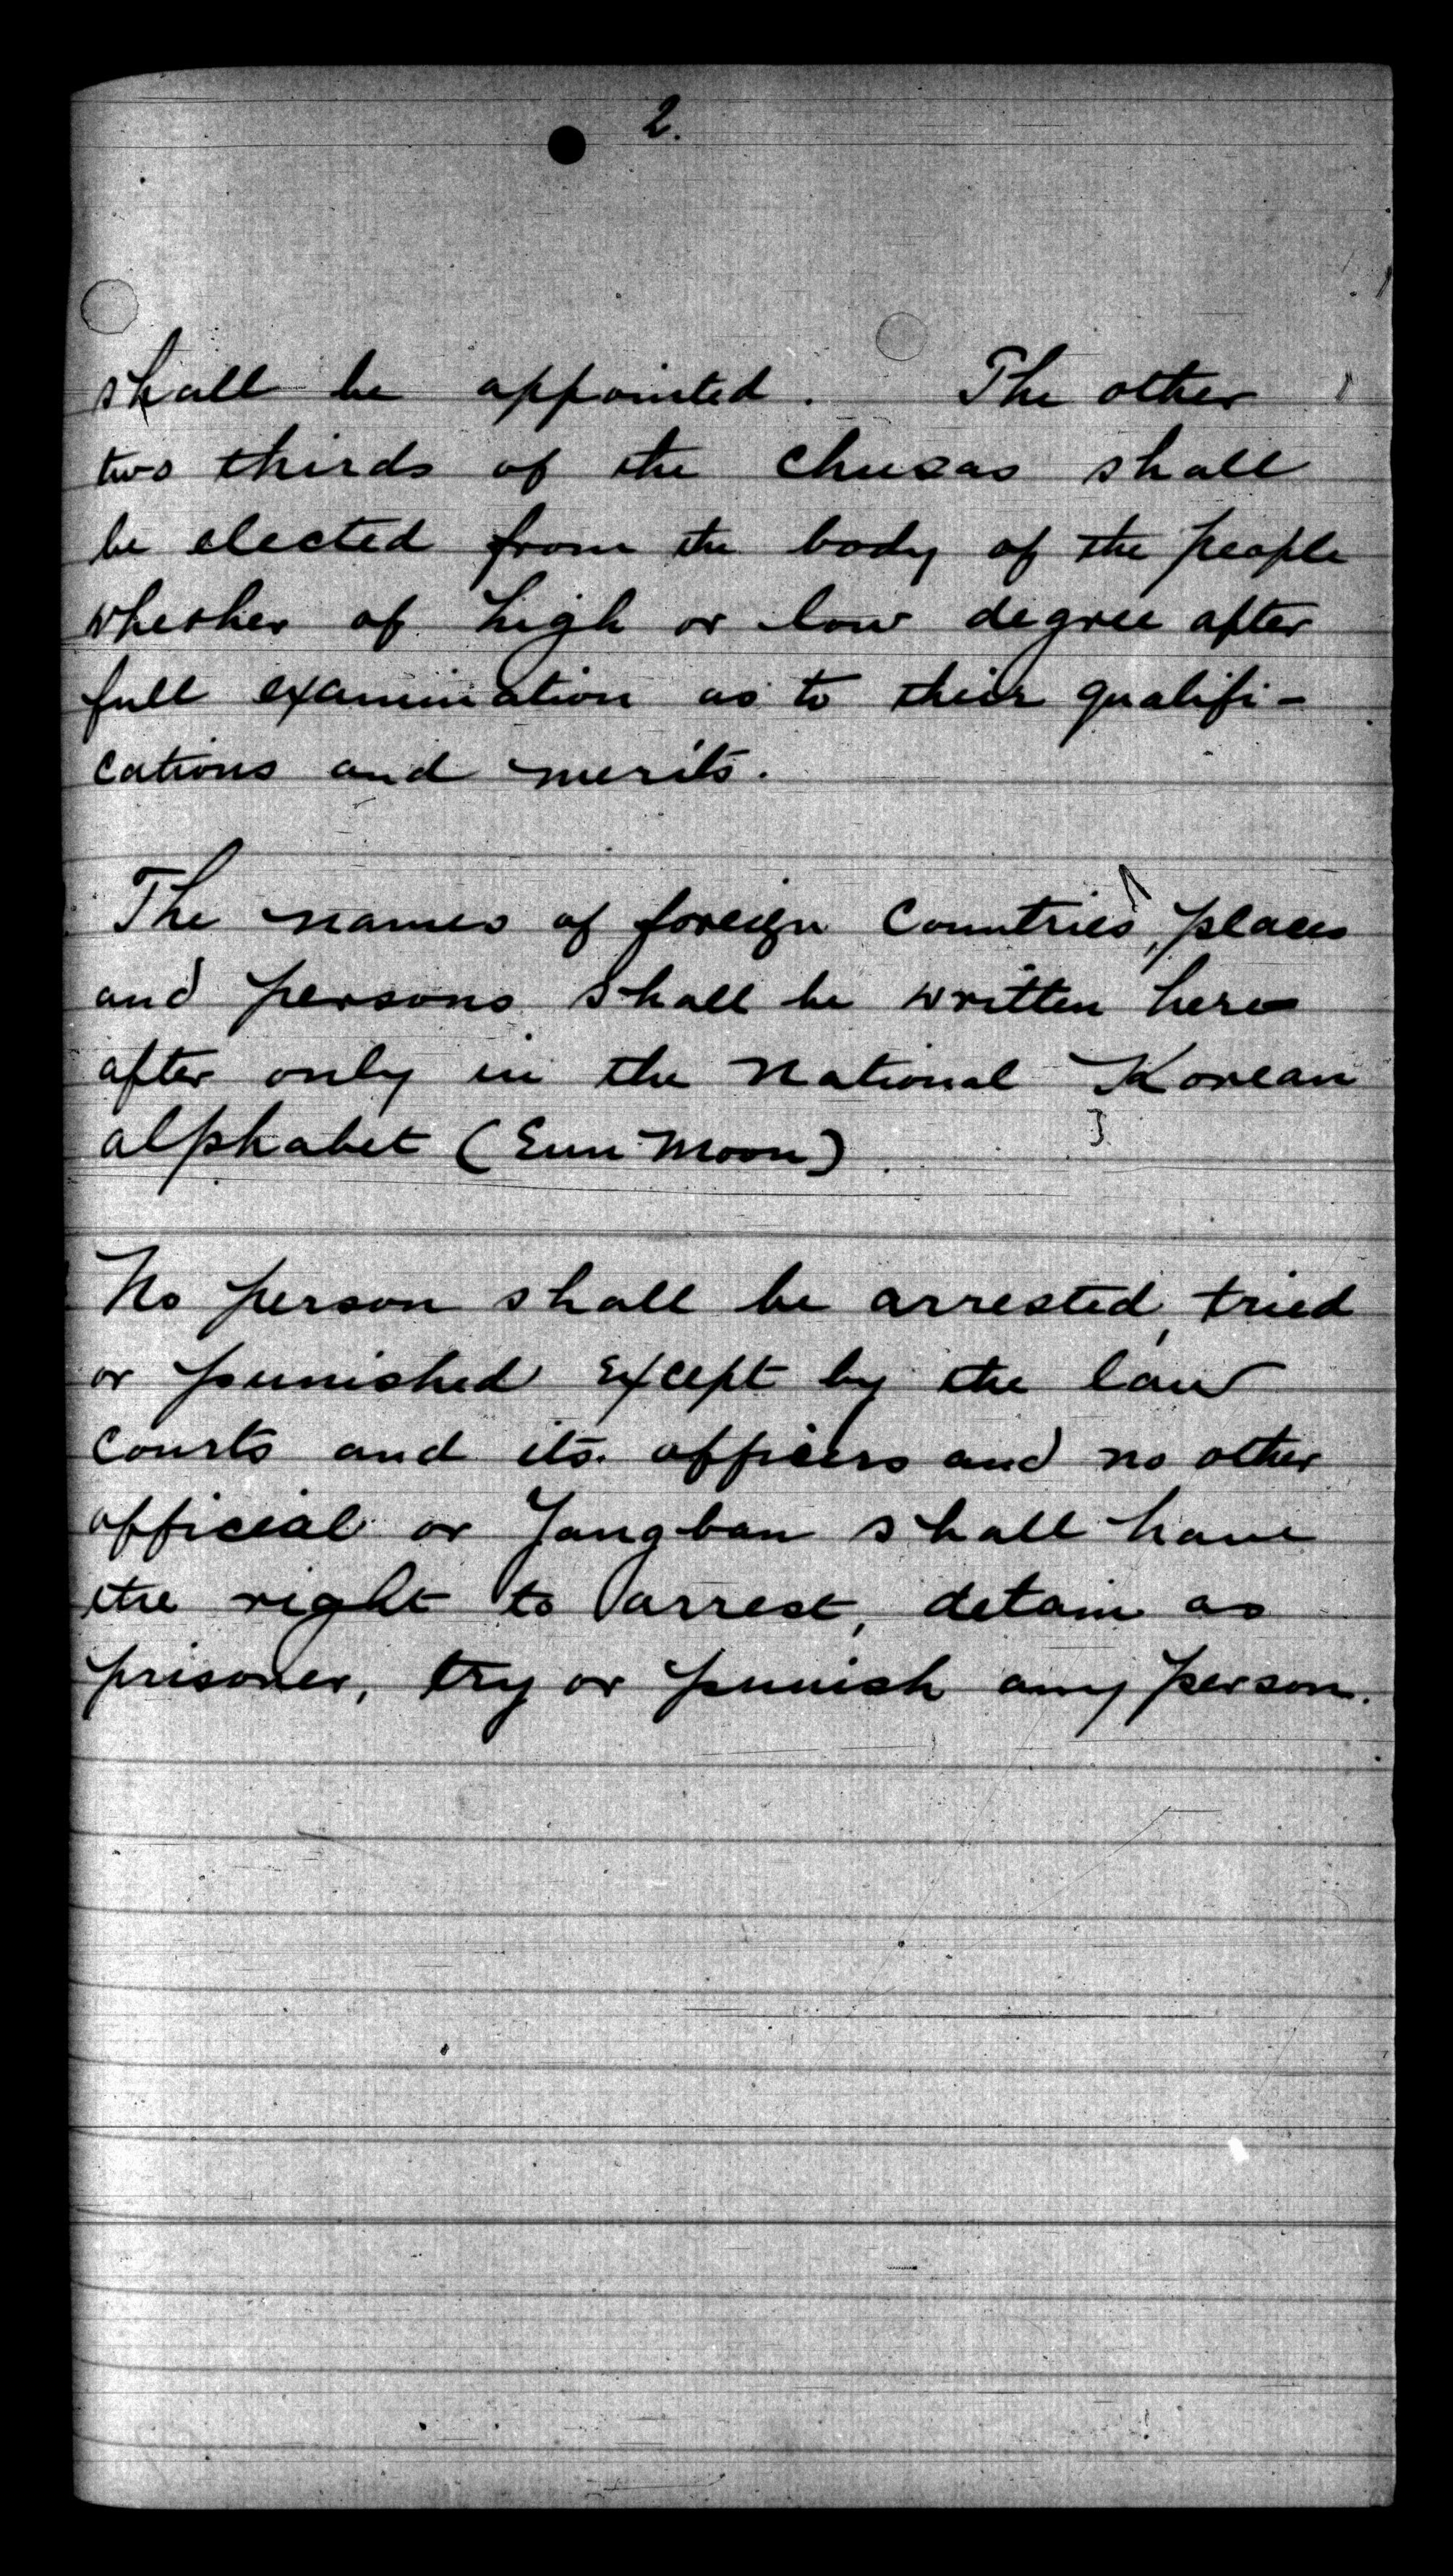 2.
shall be appointed. The other
two thirds of the Chusas shall
be elected from the body of the people
whether of high or low degree after
full examination as to their qualifi-
cations and merits.
The names of foreign Countries, places
and persons shall be written here
after only in the National Korean
alphabet (Eun Moon)
No person shall be arrested, tried
or punished except by the law
Courts and its officers and no other
official or Yangban shall have
the right to arrest, detain as
prisoner, try or punish any person.